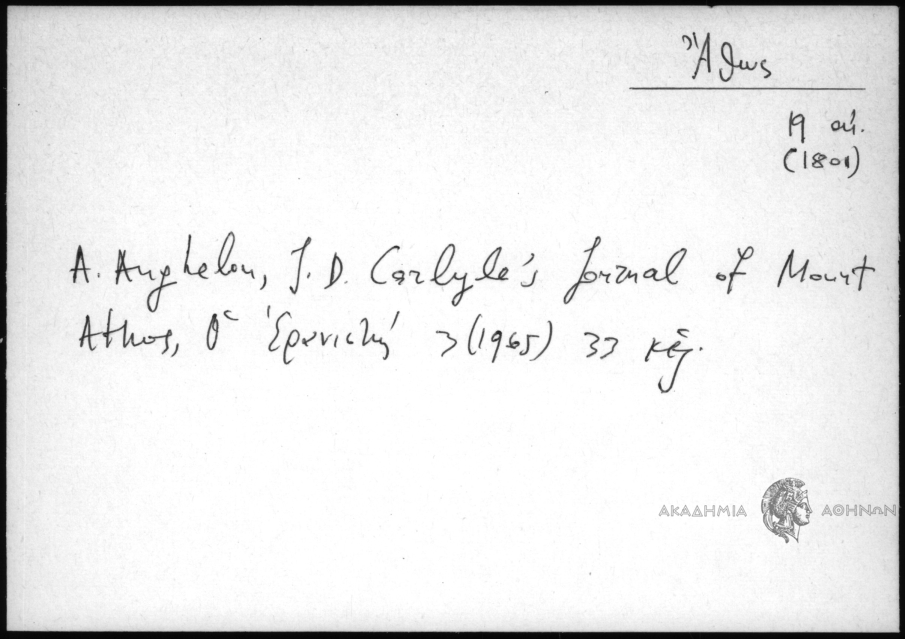 Ἄθως
19 αἰ.
(1801)
A. Anghelou, J. D. Carlyle's Journal of Mount
Athos, Ὁ Ἐρανιστής 3 (1965) 33 κἑξ.
ΑΚΑΔΗΜΙΑ ΑΘΗΝΩΝ